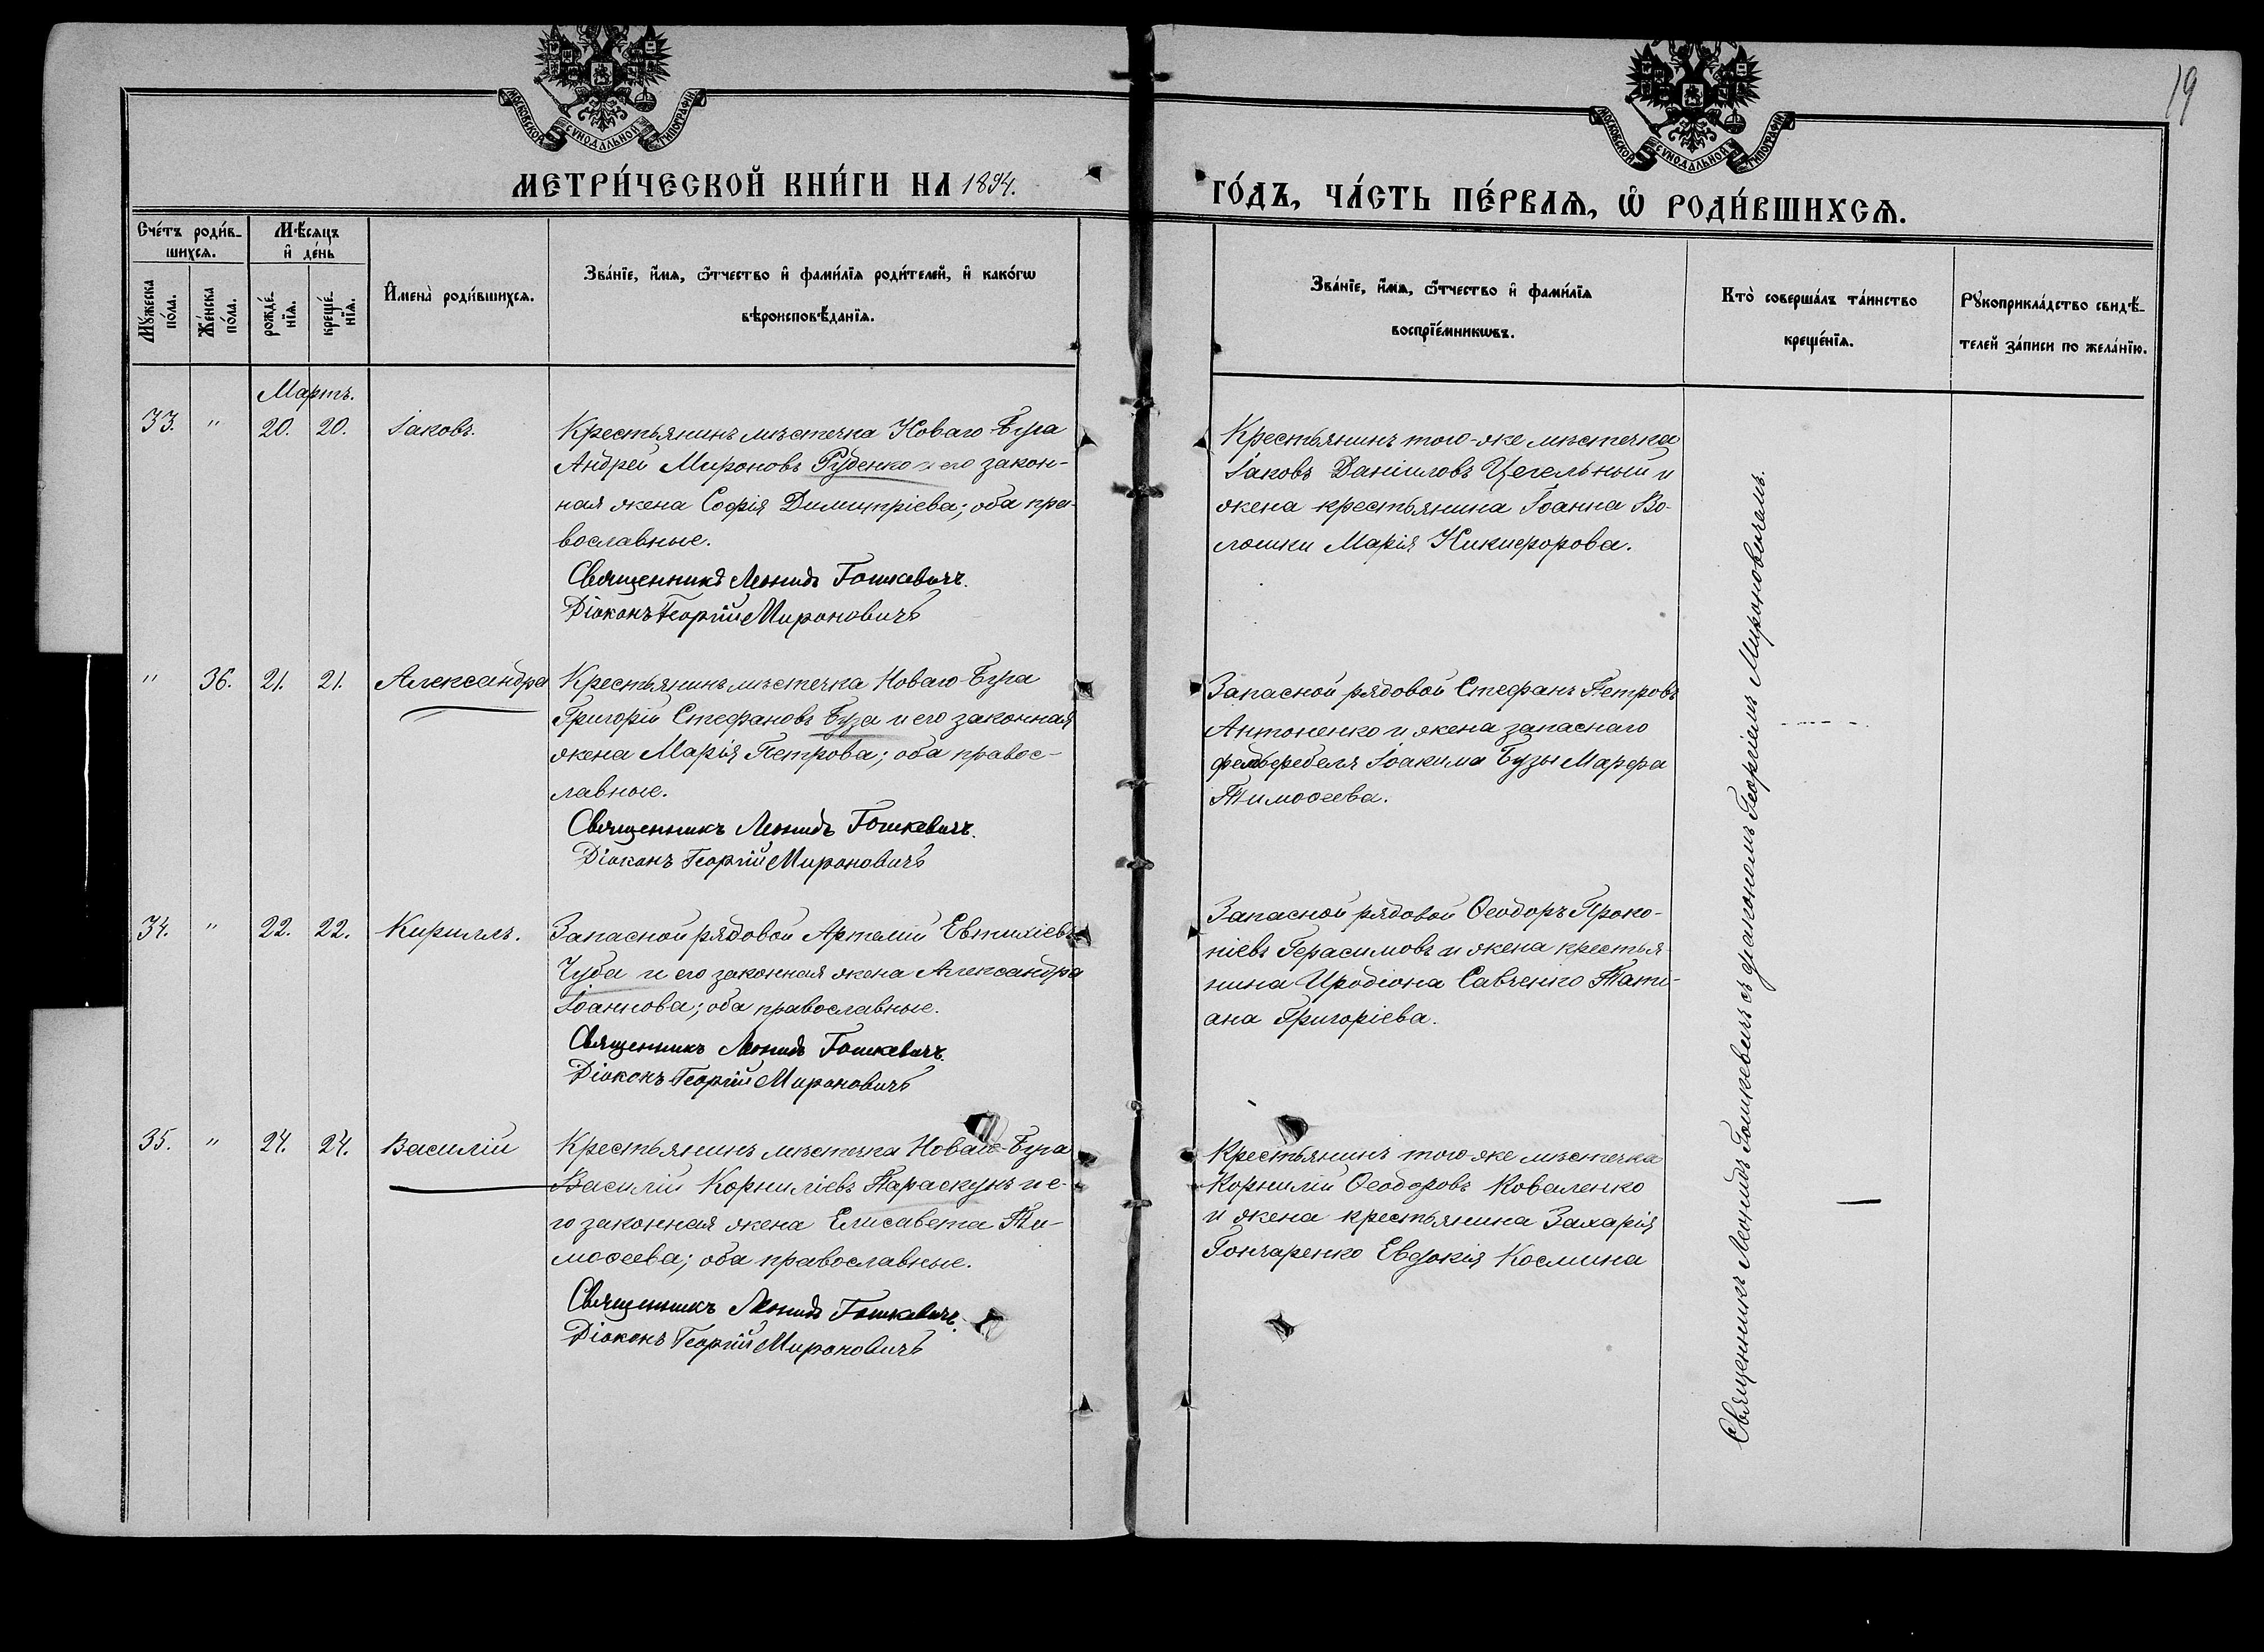 19
МОСКОВСКОЙ СѴНОДАЛЬНОЙ ТИПОГРАФІИ
МОСКОВСКОЙ СѴНОДАЛЬНОЙ ТИПОГРАФІИ
МЕТРИ́ЧЕСКОЙ КНИ́ГИ НА 1894.
ГО́ДЪ, ЧА́СТЬ ПЕ́РВАѦ, Ѡ҆ РОДИ́ВШИХСѦ.
Сче́тъ роди́в-
шихсѧ.
Мѣ́сѧцъ
и҆ де́нь
Мꙋ́жеска
по́ла.
Же́нска
по́ла.
рожде́-
нїѧ.
креще́-
нїѧ.
И҆мена̀ роди́вшихсѧ.
Зва́нїе, и҆́мѧ, ѻ҆́тчество и҆ фами́лїѧ роди́телей, и҆ како́гѡ
вѣроисповѣ́данїѧ.
Зва́нїе, и҆́мѧ, ѻ҆́тчество и҆ фами́лїѧ
воспрїе́мникѡвъ.
Кто̀ соверша́лъ та́инство
креще́нїѧ.
Рꙋкоприкла́дство свидѣ́-
телей за́писи по жела́нїю.
Мартъ.
33. " 20. 20. Іаковъ.
Крестьянинъ мѣстечка Новаго-Буга
Андрей Мироновъ Руденко и его закон-
ная жена Софія Димитріева; оба пра-
вославные.
Священникъ Леонидъ Гошкевичъ.
Діаконъ Георгій Мироновичъ
Крестьянинъ того-же мѣстечка
Іаковъ Даніиловъ Цегельный и
жена крестьянина Іоанна Во-
лошки Марія Никифорова.
" 36. 21. 21. Александра
Крестьянинъ мѣстечка Новаго-Буга
Григорій Стефановъ Буза и его законная
жена Марія Петрова; оба правос-
лавные.
Священникъ Леонидъ Гошкевичъ.
Діаконъ Георгій Мироновичъ
Запасной рядовой Стефанъ Петровъ
Антоненко и жена запаснаго
фельдфебеля Іоакима Бузы Марфа
Тимоѳеева.
34. " 22. 22. Кириллъ.
Запасной рядовой Артемій Евтихіевъ
Чуба и его законная жена Александра
Іоаннова; оба православные.
Священникъ Леонидъ Гошкевичъ.
Діаконъ Георгій Мироновичъ
Запасной рядовой Ѳеодоръ Проко-
піевъ Герасимовъ и жена крестья-
нина Иродіона Савченко Тати-
ана Григоріева.
35. " 24. 24. Василій
Крестьянинъ мѣстечка Новаго-Буга
Василій Корниліевъ Параскунъ и е-
го законная жена Елисавета Ти-
моѳеева; оба православные.
Священникъ Леонидъ Гошкевичъ.
Діаконъ Георгій Мироновичъ
Крестьянинъ того-же мѣстечка
Корнилій Ѳеодоровъ Коваленко
и жена крестьянина Захарія
Гончаренко Евдокія Космина
Священникъ Леонидъ Гошкевичъ съ діакономъ Георгіемъ Мироновичемъ.